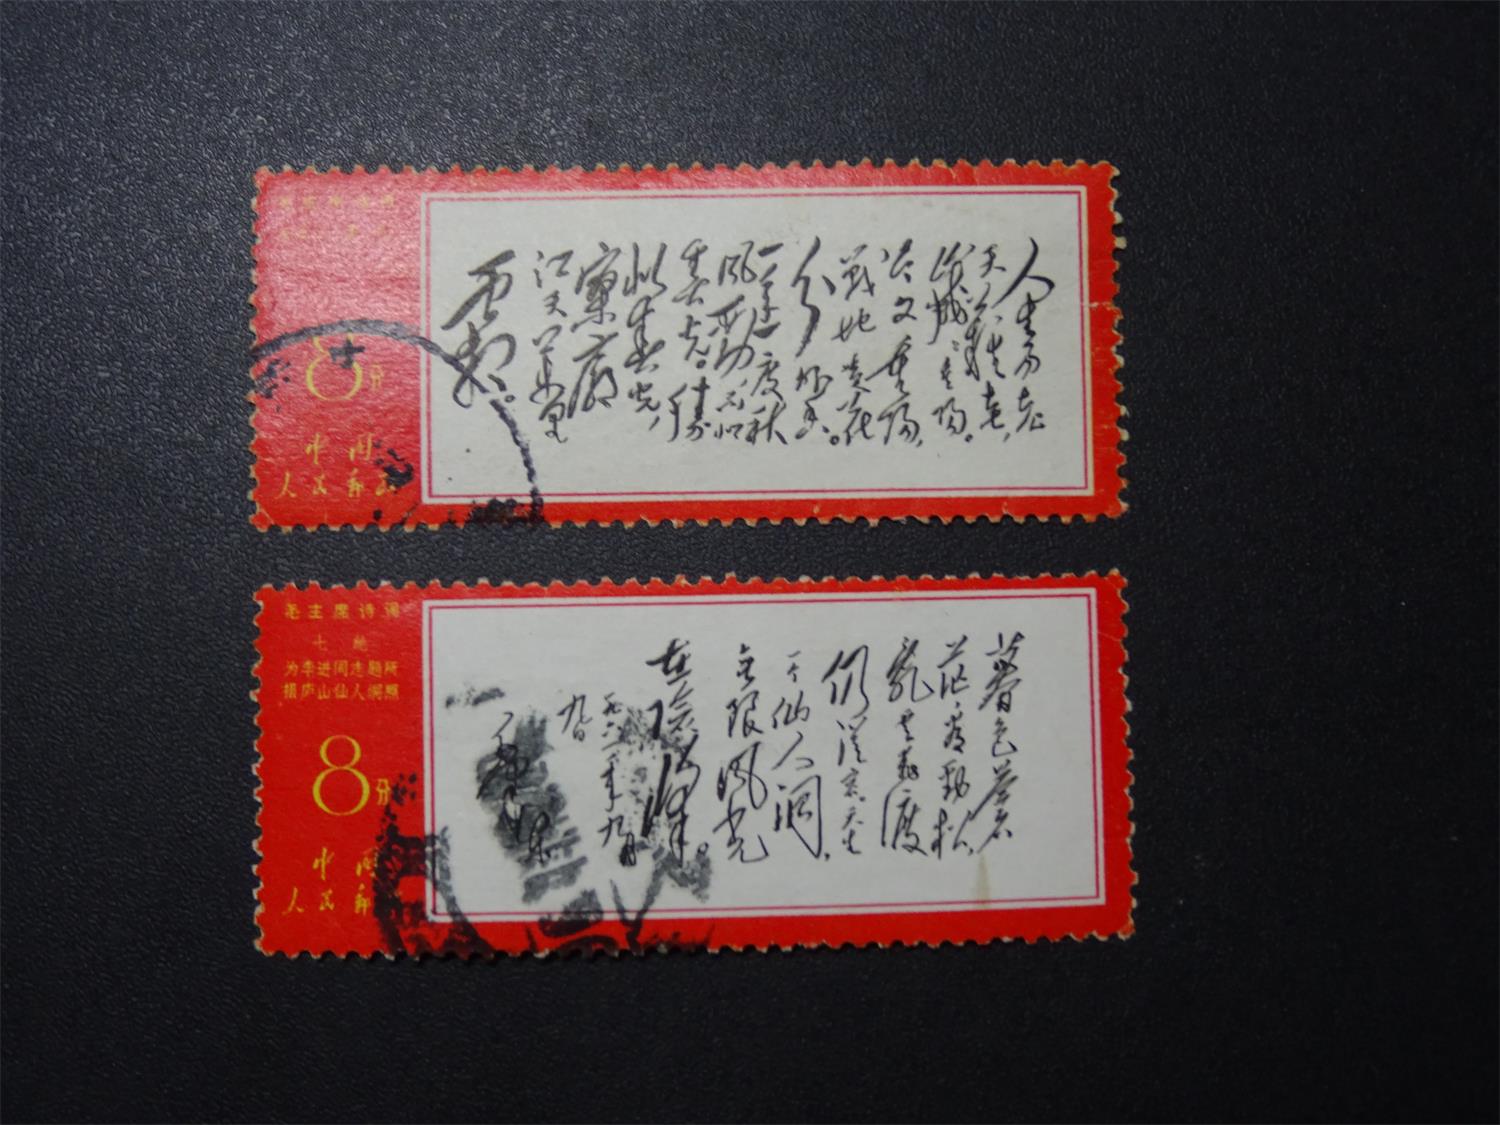 8分
中国
人民邮政
人生易老
天难老，
岁岁重阳。
今又重阳，
战地黄花
分外香。
一年一度秋
风劲不似
春光。胜
似春光，
寥廓
江天万里
霜。
毛主席诗词
七绝
为李进同志题所
摄庐山仙人洞照
8分
中国
人民邮
暮色苍
茫看劲松，
乱云飞渡
仍从容。天生
一个仙人洞，
无限风光
在险峰。
一九六一年九月
九日